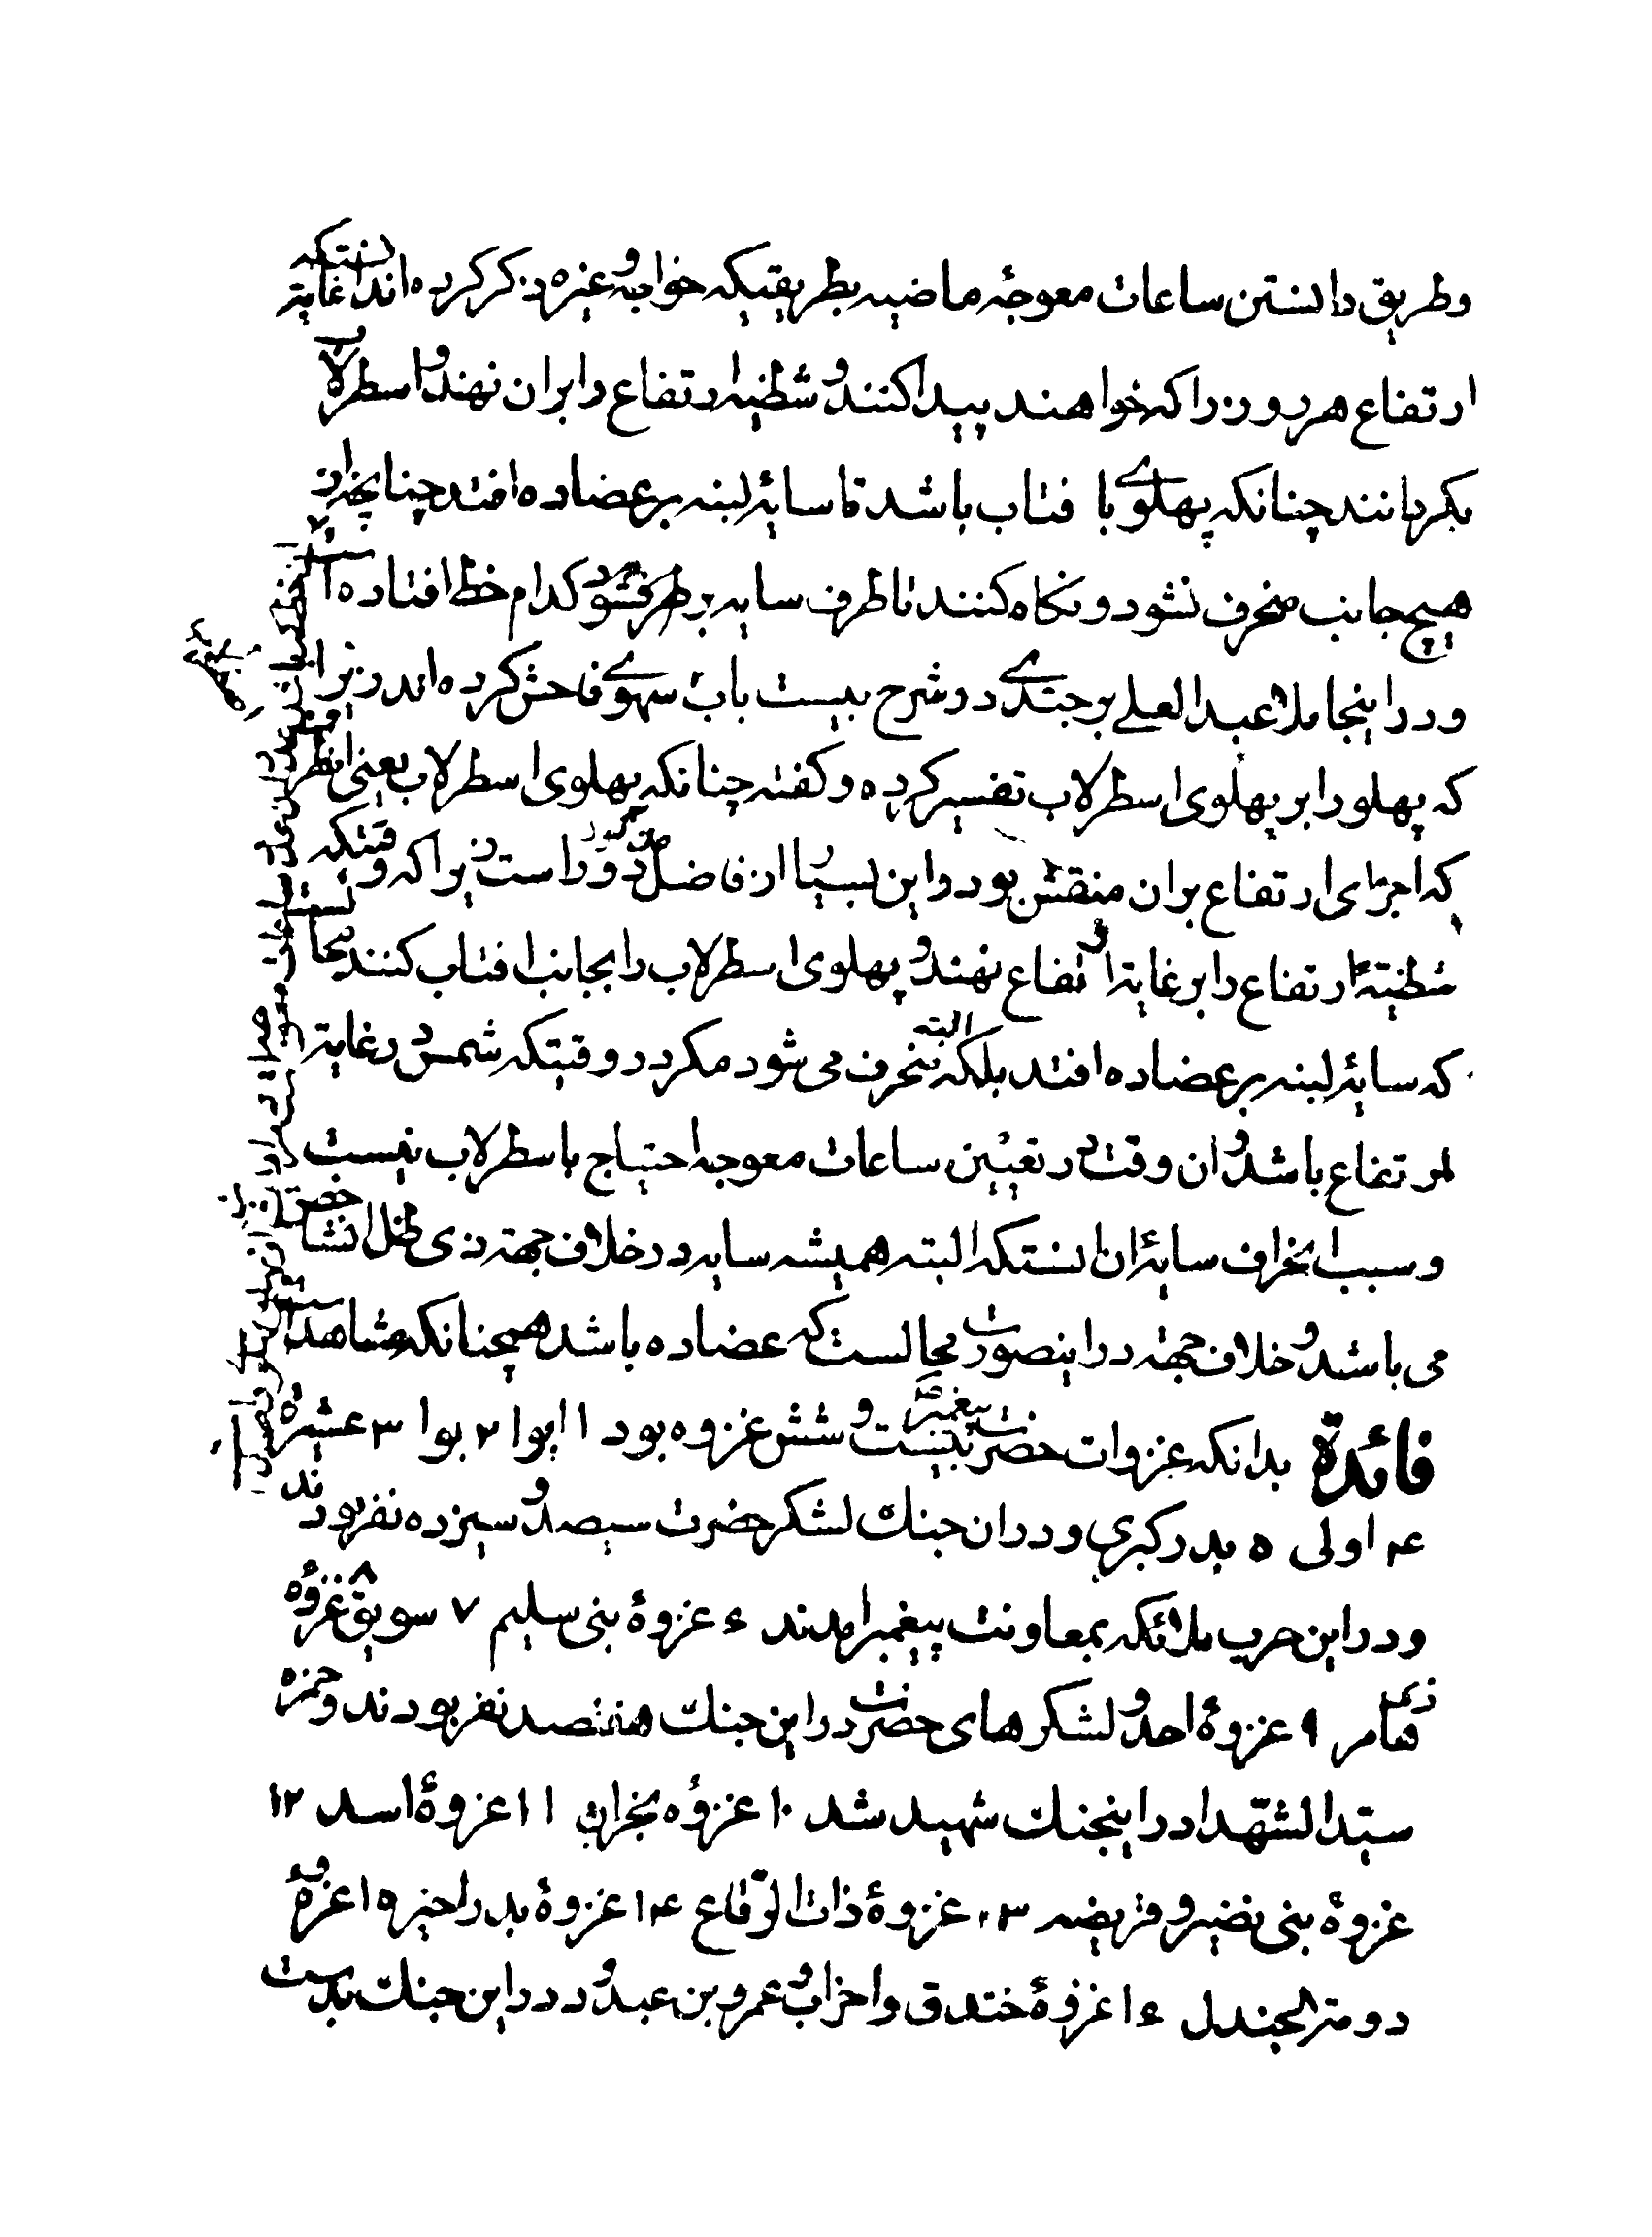 وطریق دانستن ساعات معوجهٔ ماضیه بطریقیکه خواجه و غیره ذکر کرده اند آنستکه غایة
ارتفاع هر روز را که خواهند پیدا کنند و شظیهٔ ارتفاع را بران نهند و اسطرلاب
بگردانند چنانکه پهلوی با فتاب باشد تا سایهٔ لبنه بر عضاده افتد چنانچه از
هیچ جانب منحرف نشود و نگاه کنند تا طرف سایه بر کدام خط افتاده است
و در اینجا ملا عبد العلی برجندی در شرح بیست باب سهوی فاحش کرده اند زیرا
که پهلو را بر پهلوی اسطرلاب تفسیر کرده و گفته چنانکه پهلوی اسطرلاب یعنی انطرف
که اجزای ارتفاع بران منقش بود و این بسیار از فاضل مذکور دور است زیرا که وقتیکه
شظیهٔ ارتفاع را بر غایة ارتفاع نهند و پهلوی اسطرلاب را بجانب افتاب کنند محالست
که سایهٔ لبنه بر عضاده افتد بلکه البته منحرف می شود مگر در وقتیکه شمس در غایة
ارتفاع باشد و ان وقت در تعیین ساعات معوجه احتیاج باسطرلاب نیست
و سبب انحراف سایهٔ ان انستکه البته همیشه سایه در خلاف جهة ذی ظل
می باشد و خلاف جهة در اینصورت محالست که عضاده باشد همچنانکه مشاهد است
فائدة بدانکه غزوات حضرت پیغمبر ص بیست و شش غزوه بود ۱ ابوا ۲ بوا ۳ عشیره
۴ اولی ۵ بدر کبری و در ان جنک لشکر حضرت سیصد و سیزده نفر بودند
و در این حرب ملائکه بمعاونت پیغمبر امدند ۶ غزوهٔ بنی سلیم ۷ سویق ۸ غزوهٔ
ذی امر ۹ غزوهٔ احد و لشکرهای حضرت در این جنک هفتصد نفر بودند و حمزه
سیّد الشهّدا در اینجنک شهید شد ۱۰ غزوهٔ نجران ۱۱ غزوهٔ اسد ۱۲
غزوهٔ بنی نضیر و قریضه ۱۳ غزوهٔ ذات الرّقاع ۱۴ غزوهٔ بدر اخیر ۱۵ غزوهٔ
دومة الجندل ۱۶ غزوهٔ خندق و احزاب و عمرو بن عبد ود در این جنک بدست